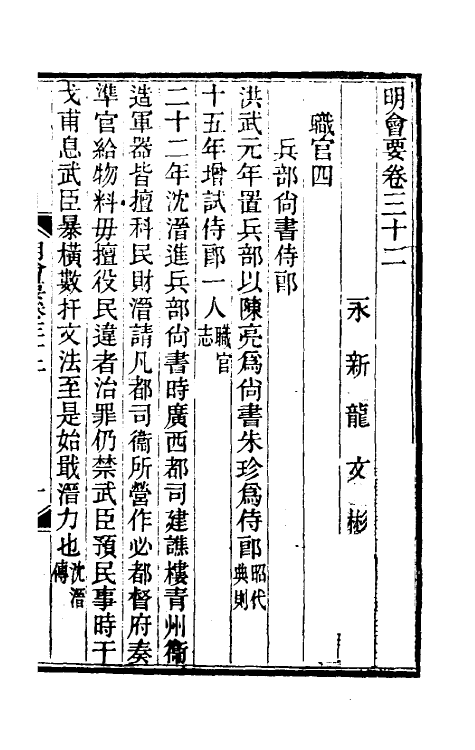 明會要卷三十二
永新龍文彬
職官四
兵部尙書侍郎
洪武元年置兵部以陳亮爲尙書朱珍爲侍郎昭代典則
十五年增試侍郎一人職官志
二十二年沈溍進兵部尙書時廣西都司建譙樓青州衞
造軍器皆擅科民財溍請凡都司衞所營作必都督府奏
準官給物料毋擅役民違者治罪仍禁武臣預民事時干
戈甫息武臣暴橫數扞文法至是始戢溍力也沈溍傳